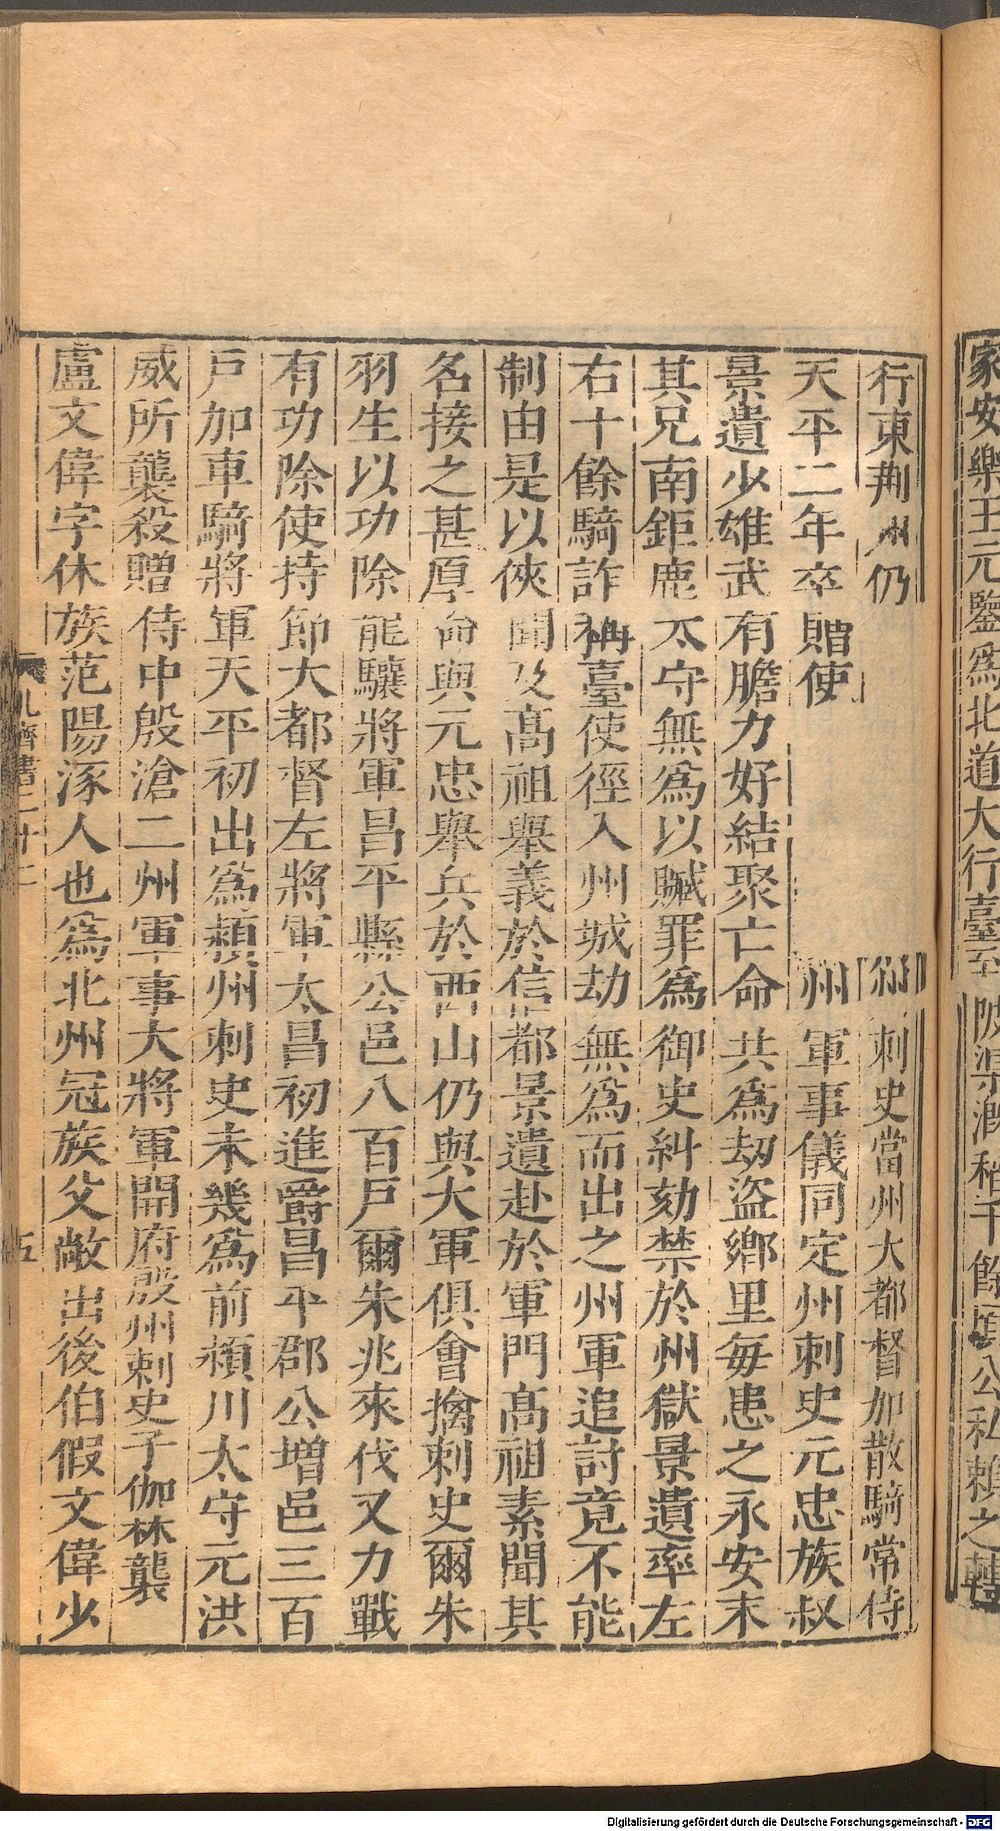 家安樂王元鑒爲北道大行臺至陂渠溉稻千餘頃公私賴之轉
行東荆州仍 刺史當州大都督加散騎常侍
天平二年卒贈使 州軍事儀同定州刺史元忠族叔
景遺少雄武有膽力好結聚亡命共爲劫盜鄉里每患之永安末
其兄南鉅鹿太守無爲以贓罪爲御史糾劾禁於州獄景遺率左
右十餘騎詐稱臺使徑入州城劫無爲而出之州軍追討竟不能
制由是以俠聞及高祖舉義於信都景遺赴於軍門高祖素聞其
名接之甚厚命與元忠舉兵於西山仍與大軍俱會擒刺史爾朱
羽生以功除龍驤將軍昌平縣公邑八百戶爾朱兆來伐又力戰
有功除使持節大都督左將軍太昌初進爵昌平郡公增邑三百
戶加車騎將軍天平初出爲潁州刺史未幾爲前潁川太守元洪
威所襲殺贈侍中殷滄二州軍事大將軍開府殷州刺史子伽林襲
盧文偉字休族范陽涿人也爲北州冠族父敞出後伯假文偉少
北齊書二十二 五
Digitalisierung gefördert durch die Deutsche Forschungsgemeinschaft - DFG